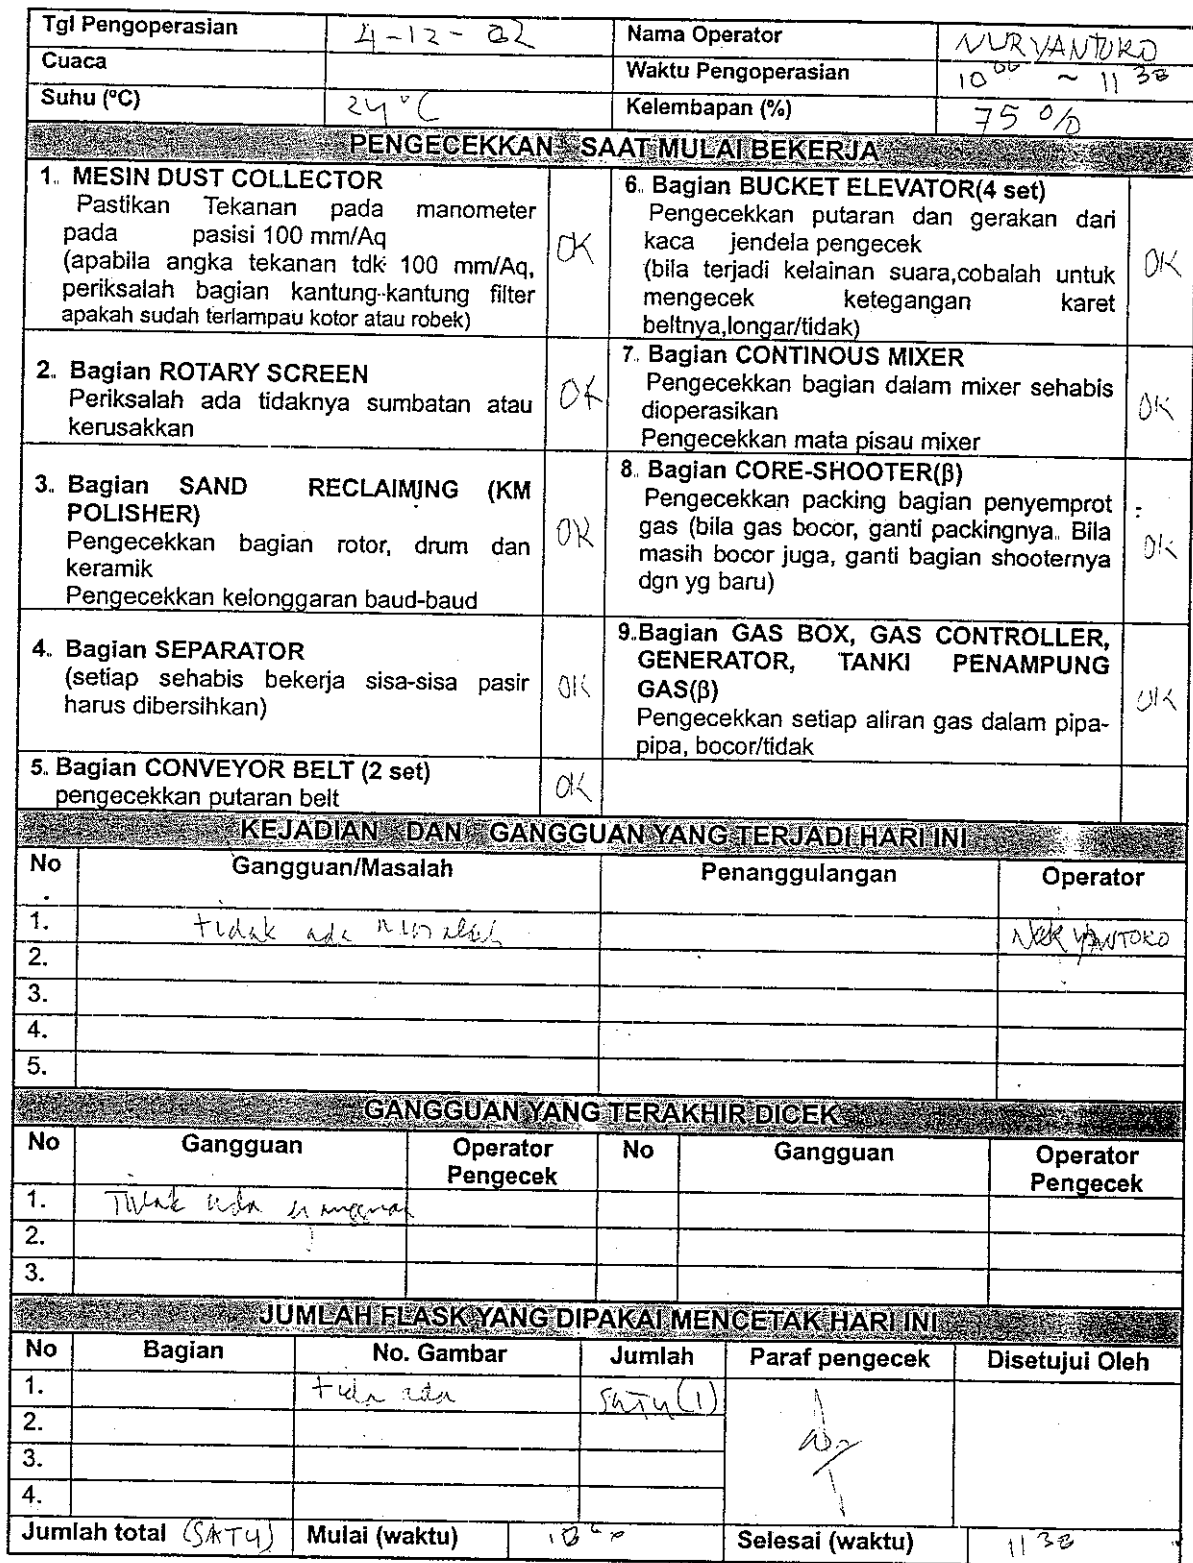 Tgl Pengoperasian 4-12-02 Nama Operator NURYANTOKO
Cuaca Waktu Pengoperasian 10 00 ~ 11 30
Suhu (ºC) 24 °C Kelembapan (%) 75 %
PENGECEKKAN SAAT MULAI BEKERJA
1. MESIN DUST COLLECTOR
Pastikan Tekanan pada manometer
pada pasisi 100 mm/Aq
(apabila angka tekanan tdk 100 mm/Aq,
periksalah bagian kantung-kantung filter
apakah sudah terlampau kotor atau robek)
OK
6. Bagian BUCKET ELEVATOR(4 set)
Pengecekkan putaran dan gerakan dari
kaca jendela pengecek
(bila terjadi kelainan suara,cobalah untuk
mengecek ketegangan karet
beltnya,longar/tidak)
OK
2. Bagian ROTARY SCREEN
Periksalah ada tidaknya sumbatan atau
kerusakkan
OK
7. Bagian CONTINOUS MIXER
Pengecekkan bagian dalam mixer sehabis
dioperasikan
Pengecekkan mata pisau mixer
OK
3. Bagian SAND RECLAIMING (KM
POLISHER)
Pengecekkan bagian rotor, drum dan
keramik
Pengecekkan kelonggaran baud-baud
OK
8. Bagian CORE-SHOOTER(β)
Pengecekkan packing bagian penyemprot
gas (bila gas bocor, ganti packingnya. Bila
masih bocor juga, ganti bagian shooternya
dgn yg baru)
OK
4. Bagian SEPARATOR
(setiap sehabis bekerja sisa-sisa pasir
harus dibersihkan)
OK
9.Bagian GAS BOX, GAS CONTROLLER,
GENERATOR, TANKI PENAMPUNG
GAS(β)
Pengecekkan setiap aliran gas dalam pipa-
pipa, bocor/tidak
OK
5. Bagian CONVEYOR BELT (2 set)
pengecekkan putaran belt
OK
KEJADIAN DAN GANGGUAN YANG TERJADI HARI INI
No Gangguan/Masalah Penanggulangan Operator
.
1. tidak ada masalah NURYANTOKO
2.
3.
4.
5.
GANGGUAN YANG TERAKHIR DICEK
No Gangguan Operator No Gangguan Operator
Pengecek Pengecek
1. Tidak ada gangguan
2.
3.
JUMLAH FLASK YANG DIPAKAI MENCETAK HARI INI
No Bagian No. Gambar Jumlah Paraf pengecek Disetujui Oleh
1. tida ada SATU (1)
2.
3.
4.
Jumlah total (SATU) Mulai (waktu) Selesai (waktu) 11 30